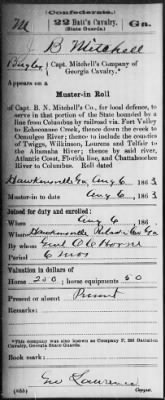 (Confederate.)
M 22 Batt's Cavalry. Ga.
(State Guards.)
J B Mitchell
Bugler, Capt. Mitchell's Company of
Georgia Cavalry.*
Appears on a
Muster-in Roll
of Capt. B. N. Mitchell's Co., for local defence, to serve
in that portion of the State bounded by a
line from Columbus by railroad via. Fort Valley
to Echaconnee Creek, thence down the creek to
Ocmulgee River; thence to include the counties
of Twiggs, Wilkinson, Laurens and Telfair to
the Altamaha River; thence by said river,
Atlantic Coast, Florida line, and Chattahoochee
River to Columbus. Roll dated
Hawkinsville Ga Aug 6, 1863
Muster-in to date Aug 6, 1863
Joined for duty and enrolled:
When Aug 4, 186
Where Hawkinsville Pulaski Co Ga
By whom
Period 6 mos
Valuation in dollars of
Horse 200; horse equipments 50
Present or absent Present
Remarks:
*This company was also known as Company F, 22d Battalion
Cavalry, Georgia State Guards.
Book mark:
Geo Lawrence
(655) Copyist.